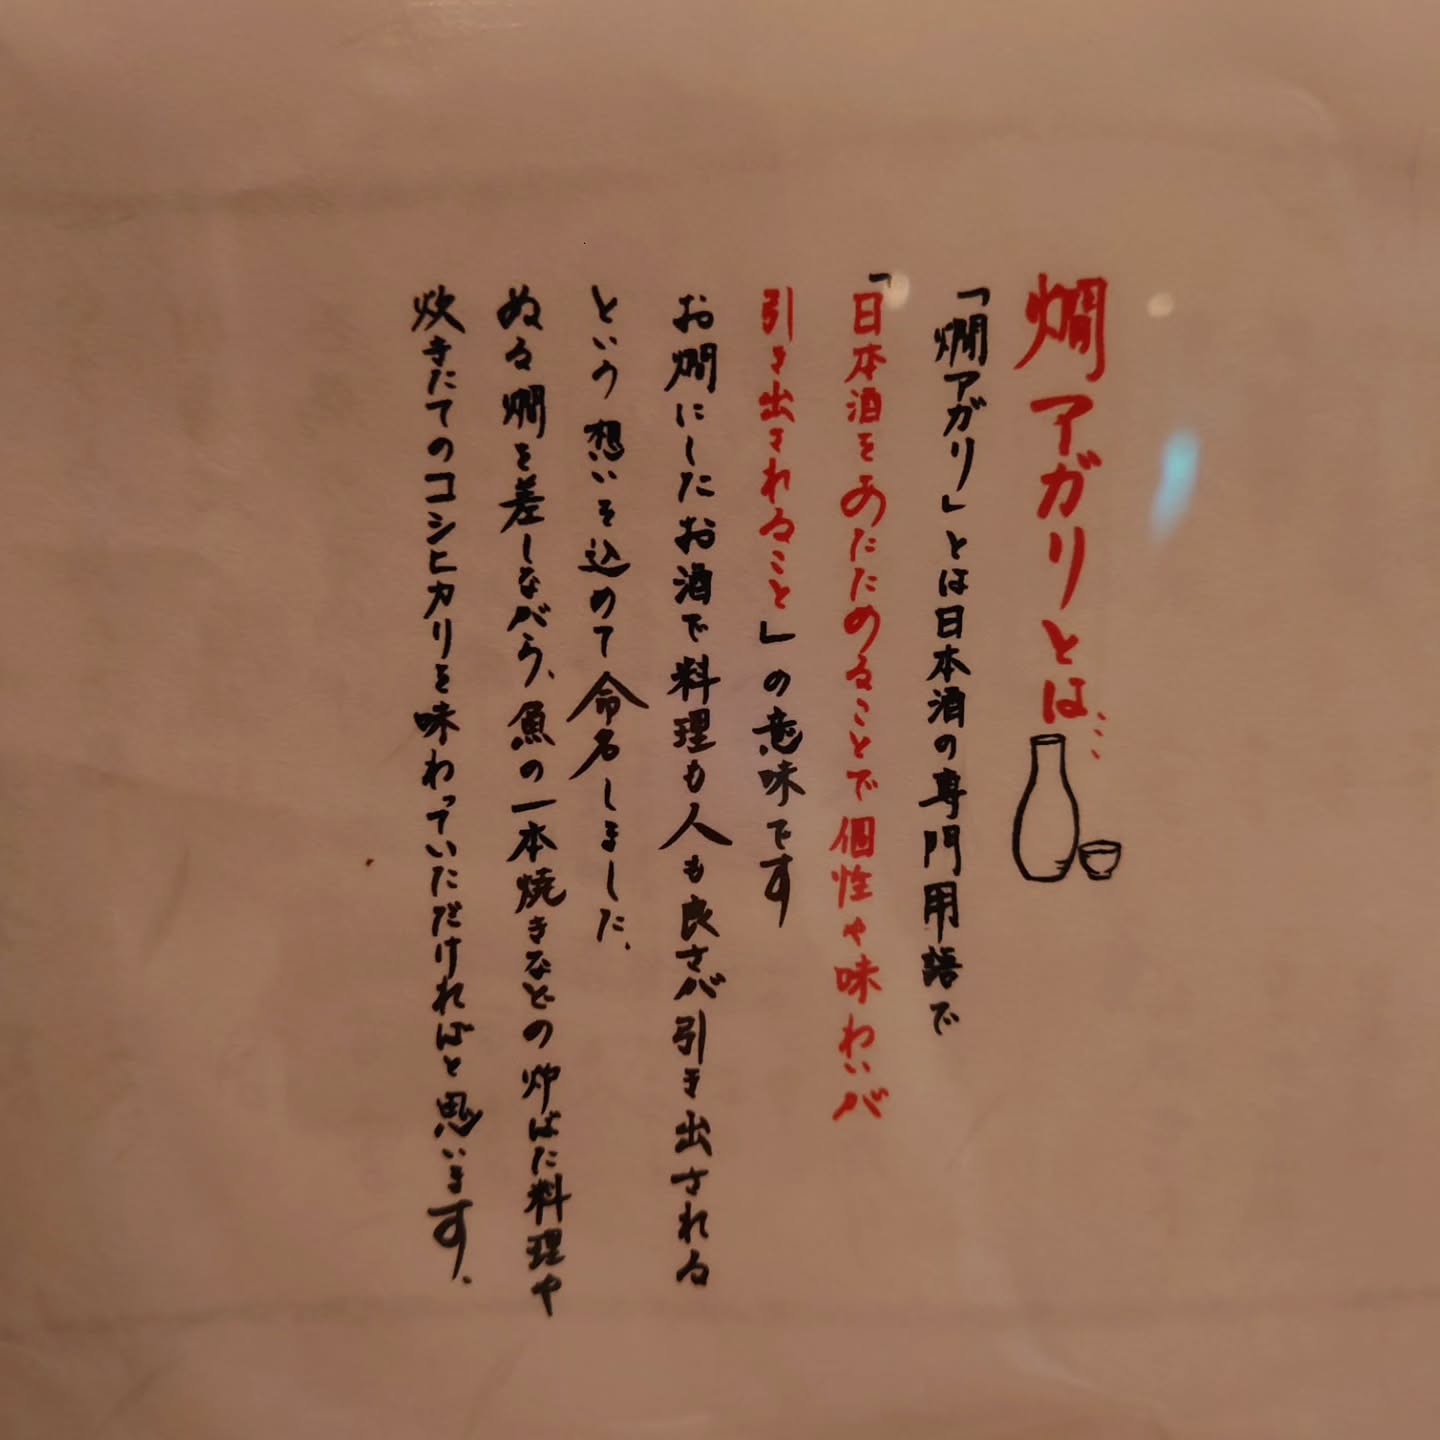 燗アガリとは…
「燗アガリ」とは日本酒の専門用語で
「日本酒をあたためることで個性や味わいが
引き出されること」の意味です
お燗にしたお酒で料理も人も良さが引き出される
という想いを込めて命名しました、
ぬる燗を差しながら、魚の一本焼きなどの炉ばた料理や
炊きたてのコシヒカリを味わっていただければと思います、